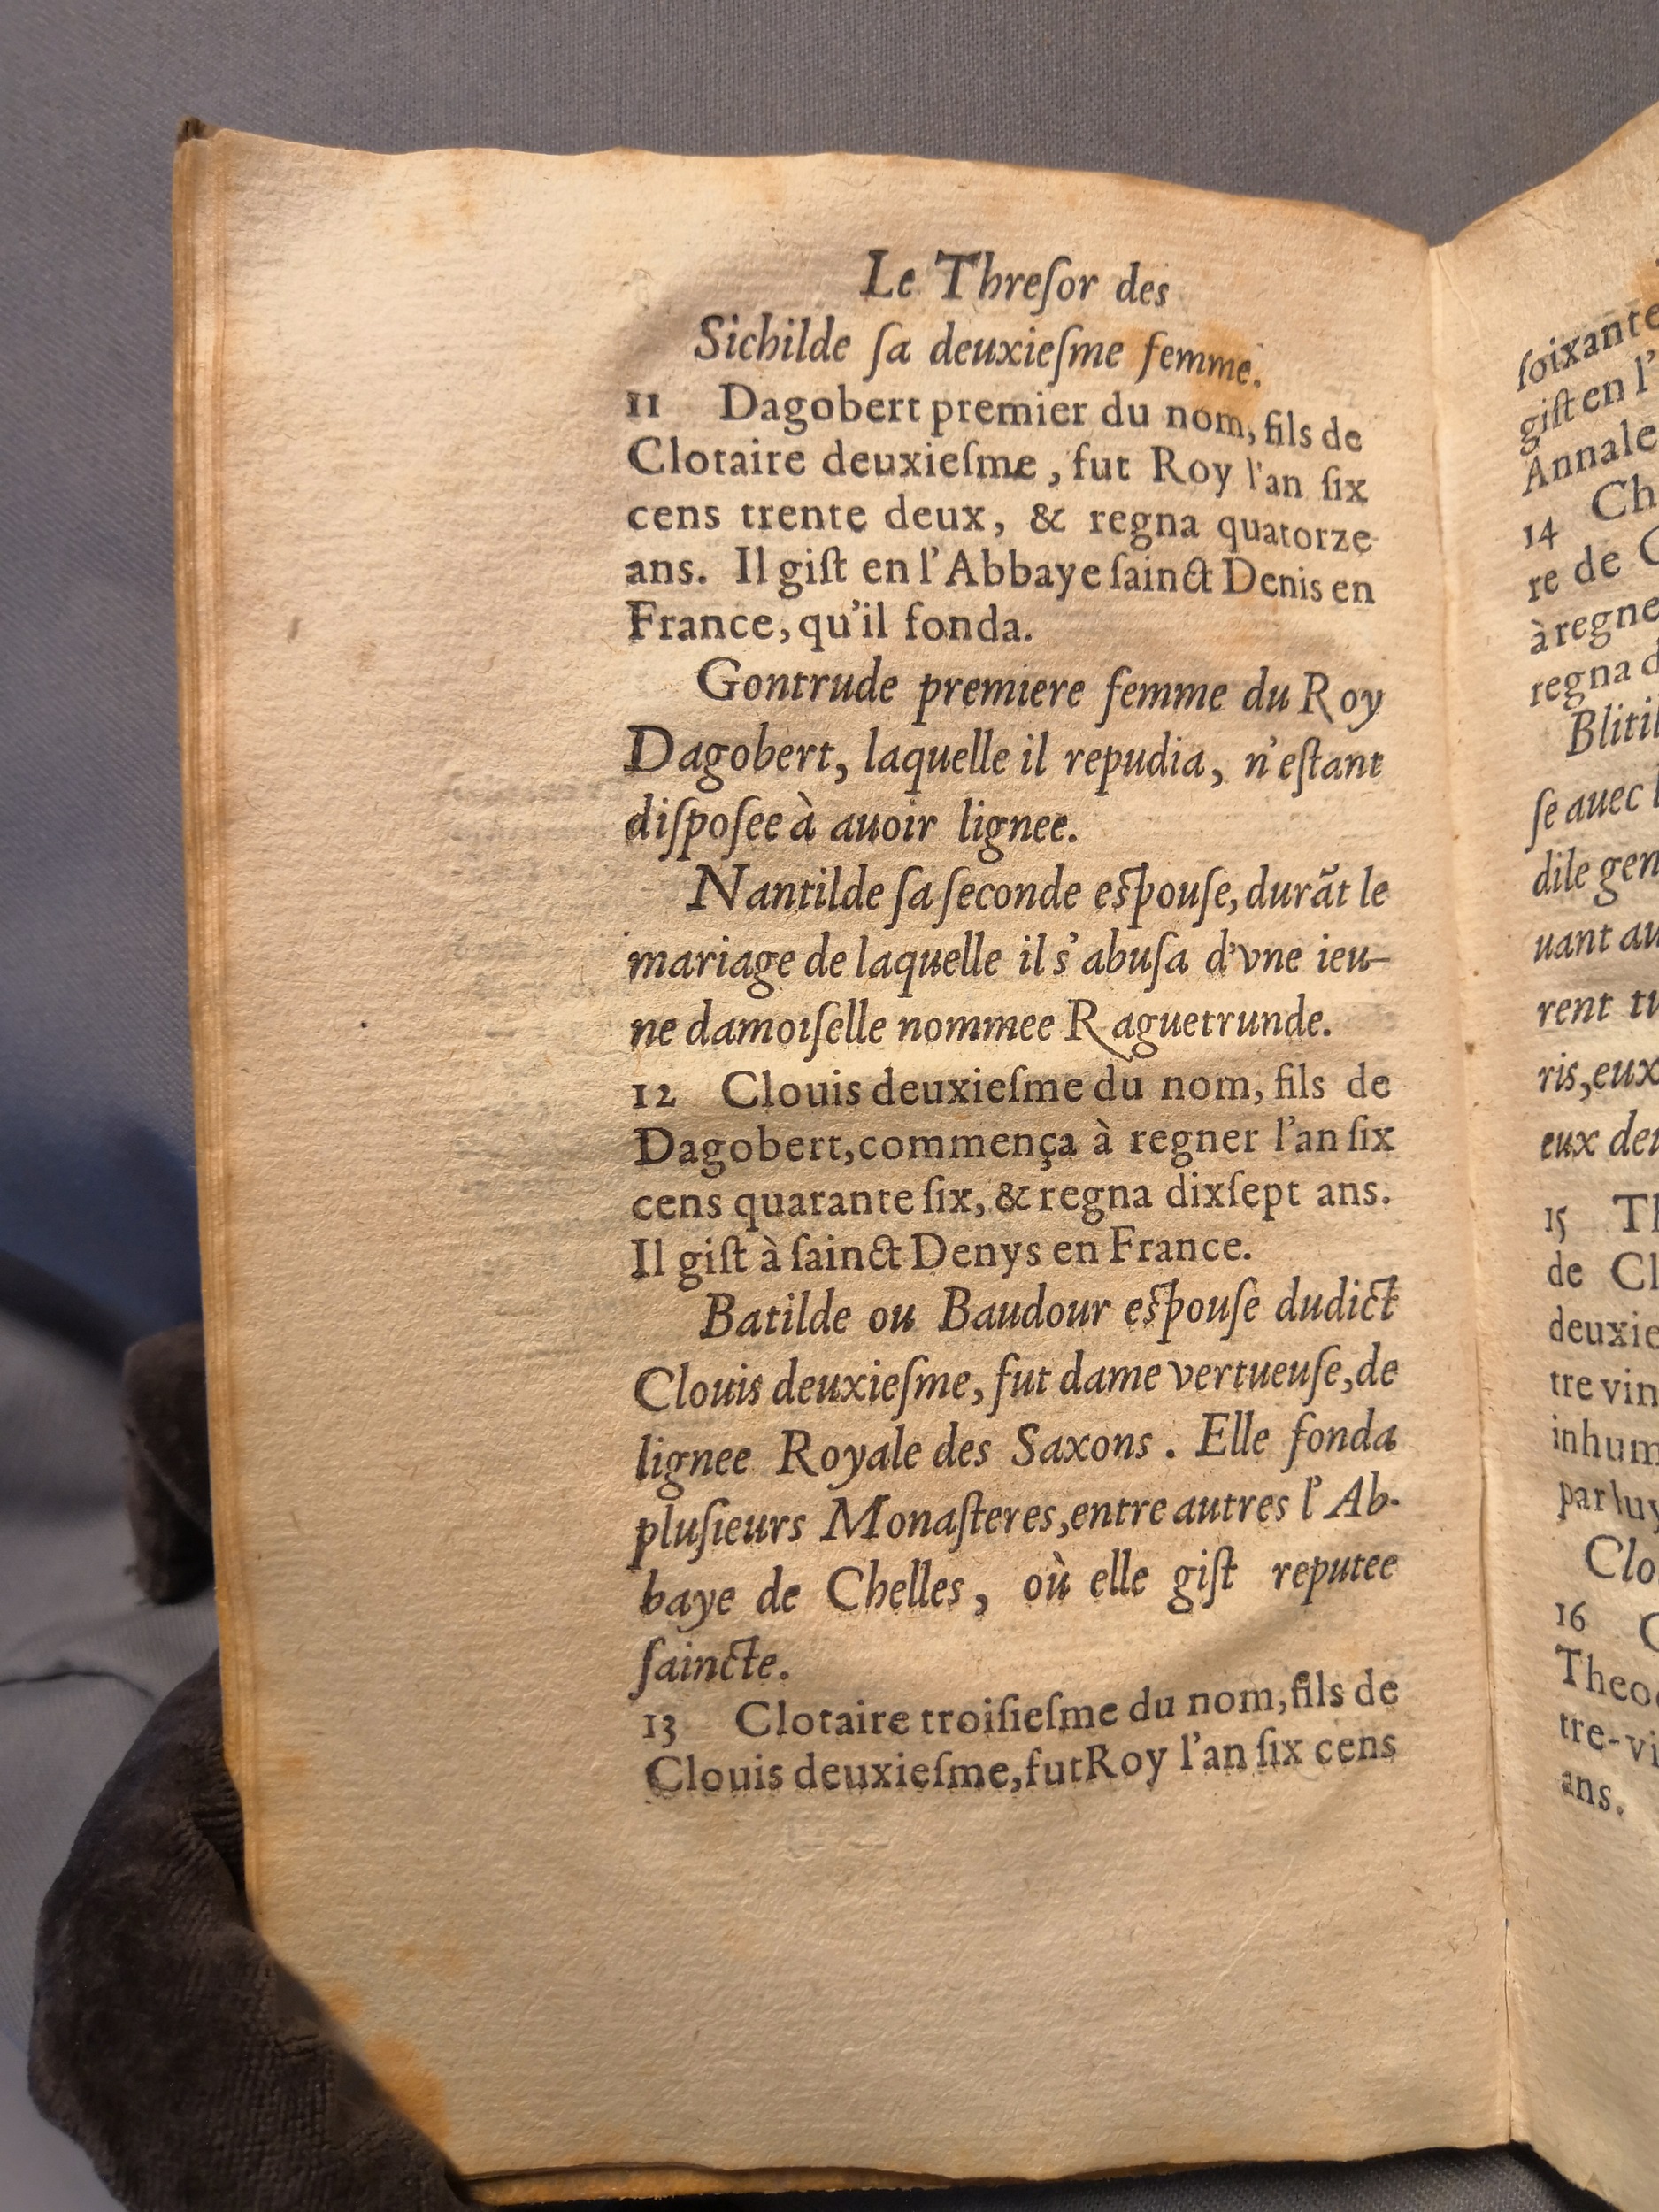 Le Threſor des
Sichilde ſa deuxieſme femme.
11 Dagobert premier du nom, fils de
Clotaire deuxieſme, fut Roy l'an ſix
cens trente deux, & regna quatorze
ans. Il giſt en l'Abbaye ſainct Denis en
France, qu'il fonda.
Gontrude premiere femme du Roy
Dagobert, laquelle il repudia, n'eſtant
diſpoſee à auoir lignee.
Nantilde ſa ſeconde eſpouſe, durãt le
mariage de laquelle il s'abuſa d'vne ieu-
ne damoiſelle nommee Raguetrunde.
12 Clouis deuxieſme du nom, fils de
Dagobert, commença à regner l'an ſix
cens quarante ſix, & regna dixſept ans.
Il giſt à ſainct Denys en France.
Batilde ou Baudour eſpouſe dudict
Clouis deuxieſme, fut dame vertueuſe, de
lignee Royale des Saxons. Elle fonda
pluſieurs Monaſteres, entre autres l'Ab-
baye de Chelles, où elle giſt reputee
ſaincte.
13 Clotaire troiſieſme du nom, fils de
Clouis deuxieſme, fut Roy l'an ſix cens
ſoixante
giſt en l'
Annale
14 Ch
re de C
à regne
regna d
Blitil
ſe auec l
dile gen
uant au
rent tu
ris, eux
eux deu
15 Th
de Cl
deuxie
tre vin
inhum
par luy
Clo
16 C
Theod
tre-vi
ans.